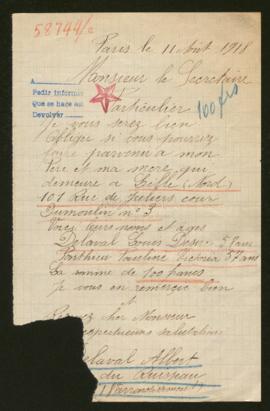 58744/2
Paris le 11 Août 1918
Monsieur le Secretaire
A
Pedir informe
Que se hace así
Devolver
Particulier
100 frs
Je vous serez bien
obliger si vous pourriez
faire parvenir a mon
Père et ma mère qui
demeure a Lille (Nord)
101 Rue de Juliers cour
Dumoulin n° 3
Voici leurs noms et ages
Delaval Louis Desire 57 ans
Ponthieu Pauline Victoria 57 ans
La somme de 100 francs
je vous en remercie bien
et
Monsieur
respectueuses salutations
Delaval Albert
du Ruisseau